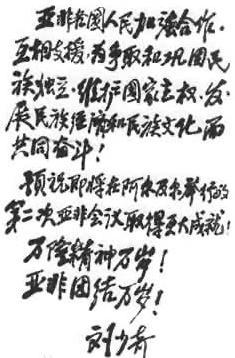 亚非各國人民加強合作，
互相支援，为爭取和巩固民
族独立，维护国家主权，发
展民族经济和民族文化而
共同奋斗！
预祝即将在阿尔及尔举行的
第二次亚非会议取得更大成就！
万隆精神万岁！
亚非团结万岁！
刘少奇